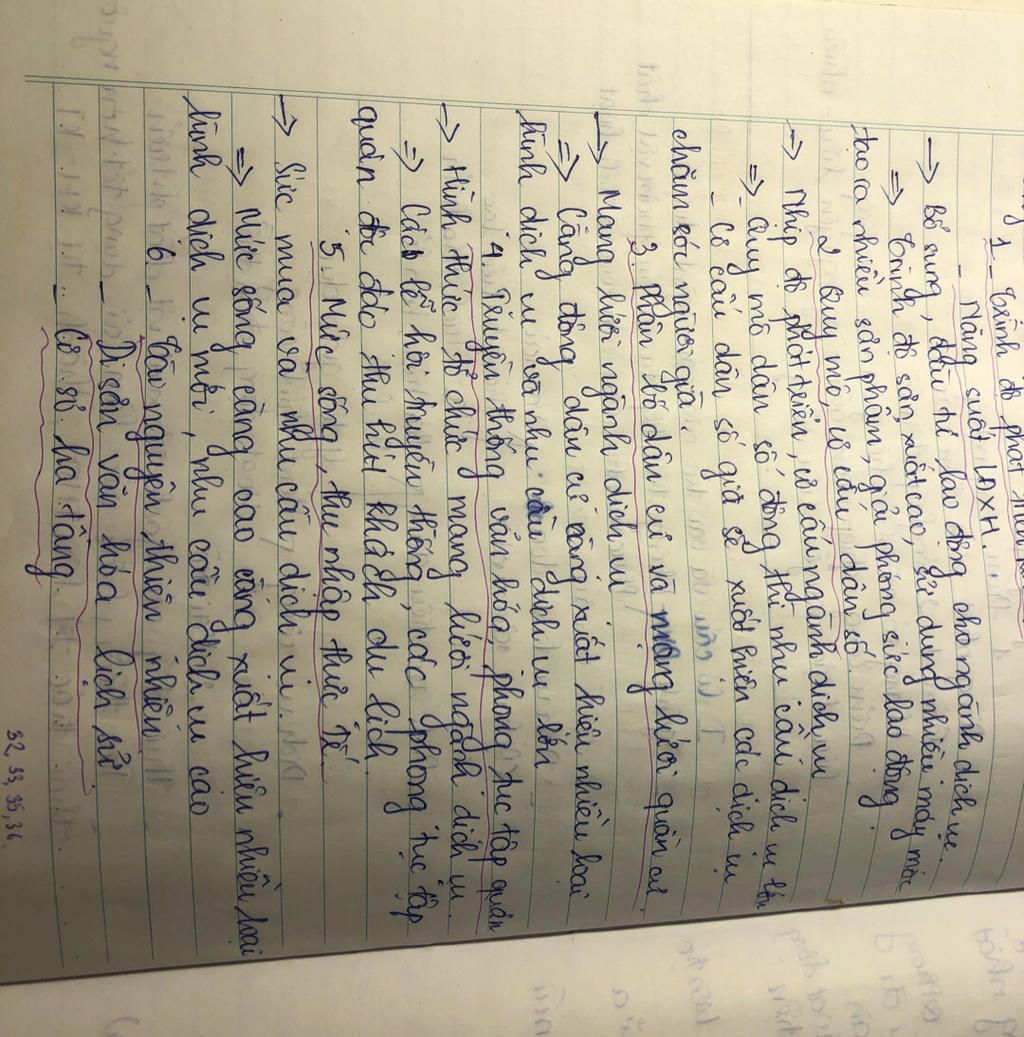 1. Trình độ phát triển
Năng suất LĐXH.
→ Bổ sung, đầu tư lao động cho ngành dịch vụ.
⇒ Trình độ sản xuất cao, sử dụng nhiều máy móc
tạo ra nhiều sản phẩm, giải phóng sức lao động
2. Quy mô, cơ cấu dân số
→ Nhịp độ phát triển, cơ cấu ngành dịch vụ
⇒ Quy mô dân số đông thì nhu cầu dịch vụ lớn
- Cơ cấu dân số già sẽ xuất hiện các dịch vụ
chăm sóc người già.
3. Phân bố dân cư và mạng lưới quần cư
→ Mạng lưới ngành dịch vụ
⇒ Càng đông dân cư càng xuất hiện nhiều loại
hình dịch vụ và nhu cầu dịch vụ lớn
4. Truyền thống văn hóa, phong tục tập quán
→ Hình thức tổ chức mạng lưới ngành dịch vụ
⇒ Các lễ hội truyền thống, các phong tục tập
quán độc đáo thu hút khách du lịch
5. Mức sống, thu nhập thực tế
→ Sức mua và nhu cầu dịch vụ.
⇒ Mức sống càng cao càng xuất hiện nhiều loại
hình dịch vụ mới, nhu cầu dịch vụ cao
6. Tài nguyên thiên nhiên
- Di sản văn hóa lịch sử
Cơ sở hạ tầng
32, 33, 35, 36.